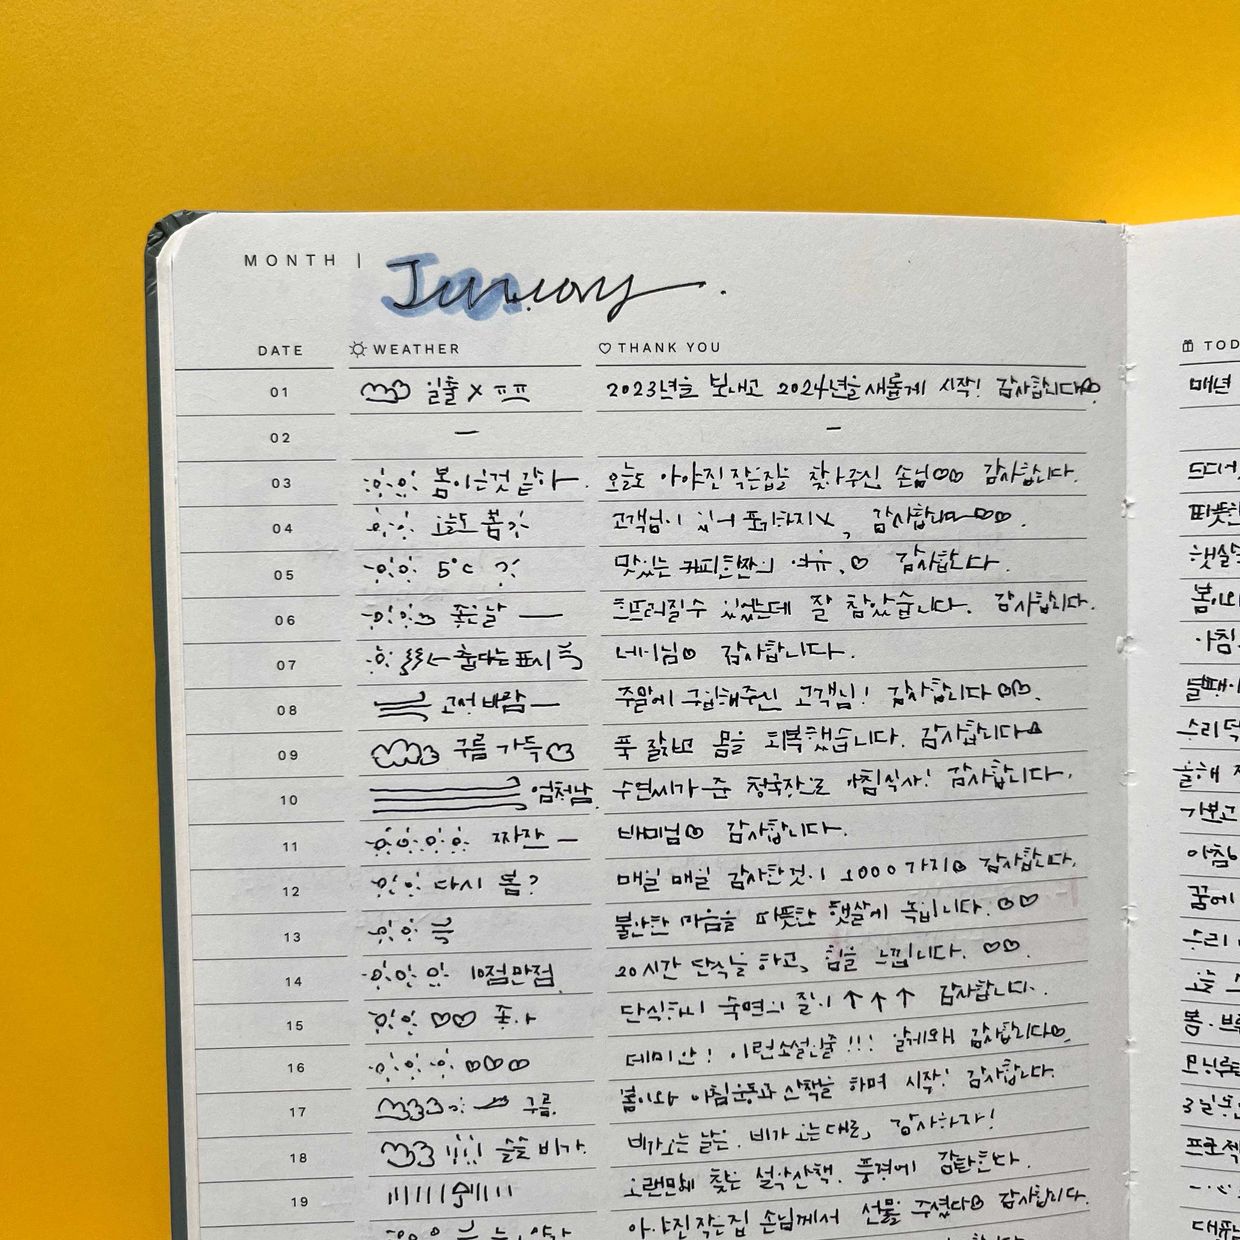 MONTH | January.
DATE WEATHER THANK YOU TOD
01 일출 X ㅠㅠ 2023년을 보내고 2024년을 새롭게 시작! 감사합니다 매년
02 — —
03 봄이는것 같아. 오늘도 아야진 작은집을 찾아주신 손님♡♡ 감사합니다. 드디어
04 오늘도 봄? 고객님이 있어 포기하지X, 감사합니다♡♡. 따뜻한
05 5°C 맛있는 커피한잔의 여유.♡ 감사합니다. 햇살
06 좋은날 — 흐트러질수 있었는데 잘 참았습니다. 감사합니다. 봄이와
07 ← 춥다는 표시 네미님♡ 감사합니다. 아침
08 고성 바람 — 주말에 구입해주신 고객님! 감사합니다♡♡.
09 구름 가득 푹 잘쉬고 몸을 회복했습니다. 감사합니다 수리
10 엄청남. 수연씨가 준 청국장으로 아침식사! 감사합니다. 올해
11 짜잔 — 바미님♡ 감사합니다. 가보고
12 다시 봄? 매일 매일 감사한것이 1000가지♡ 감사합니다. 아침
13 불안한 마음을 따뜻한 햇살에 녹입니다.♡♡ 꿈에
14 10점만점 20시간 단식을 하고, 힘을 느낍니다. ♡♡. 수리
15 ♡♡ 좋아 단식하니 숙면의 질이 ↑↑↑ 감사합니다. 오늘
16 ♡♡♡ 데미안! 이런소설인줄!!! 알게되어 감사합니다♡. 봄.
17 구름. 봄이와 아침운동과 산책을 하며 시작! 감사합니다.
18 슬슬 비가. 비가오는 날은. 비가 오는대로, 감사하자! 3일
19 오랜만에 찾은 설악산책. 풍경에 감탄한다. 프로젝
아야진작은집 손님께서 선물 주셨다♡ 감사합니다.